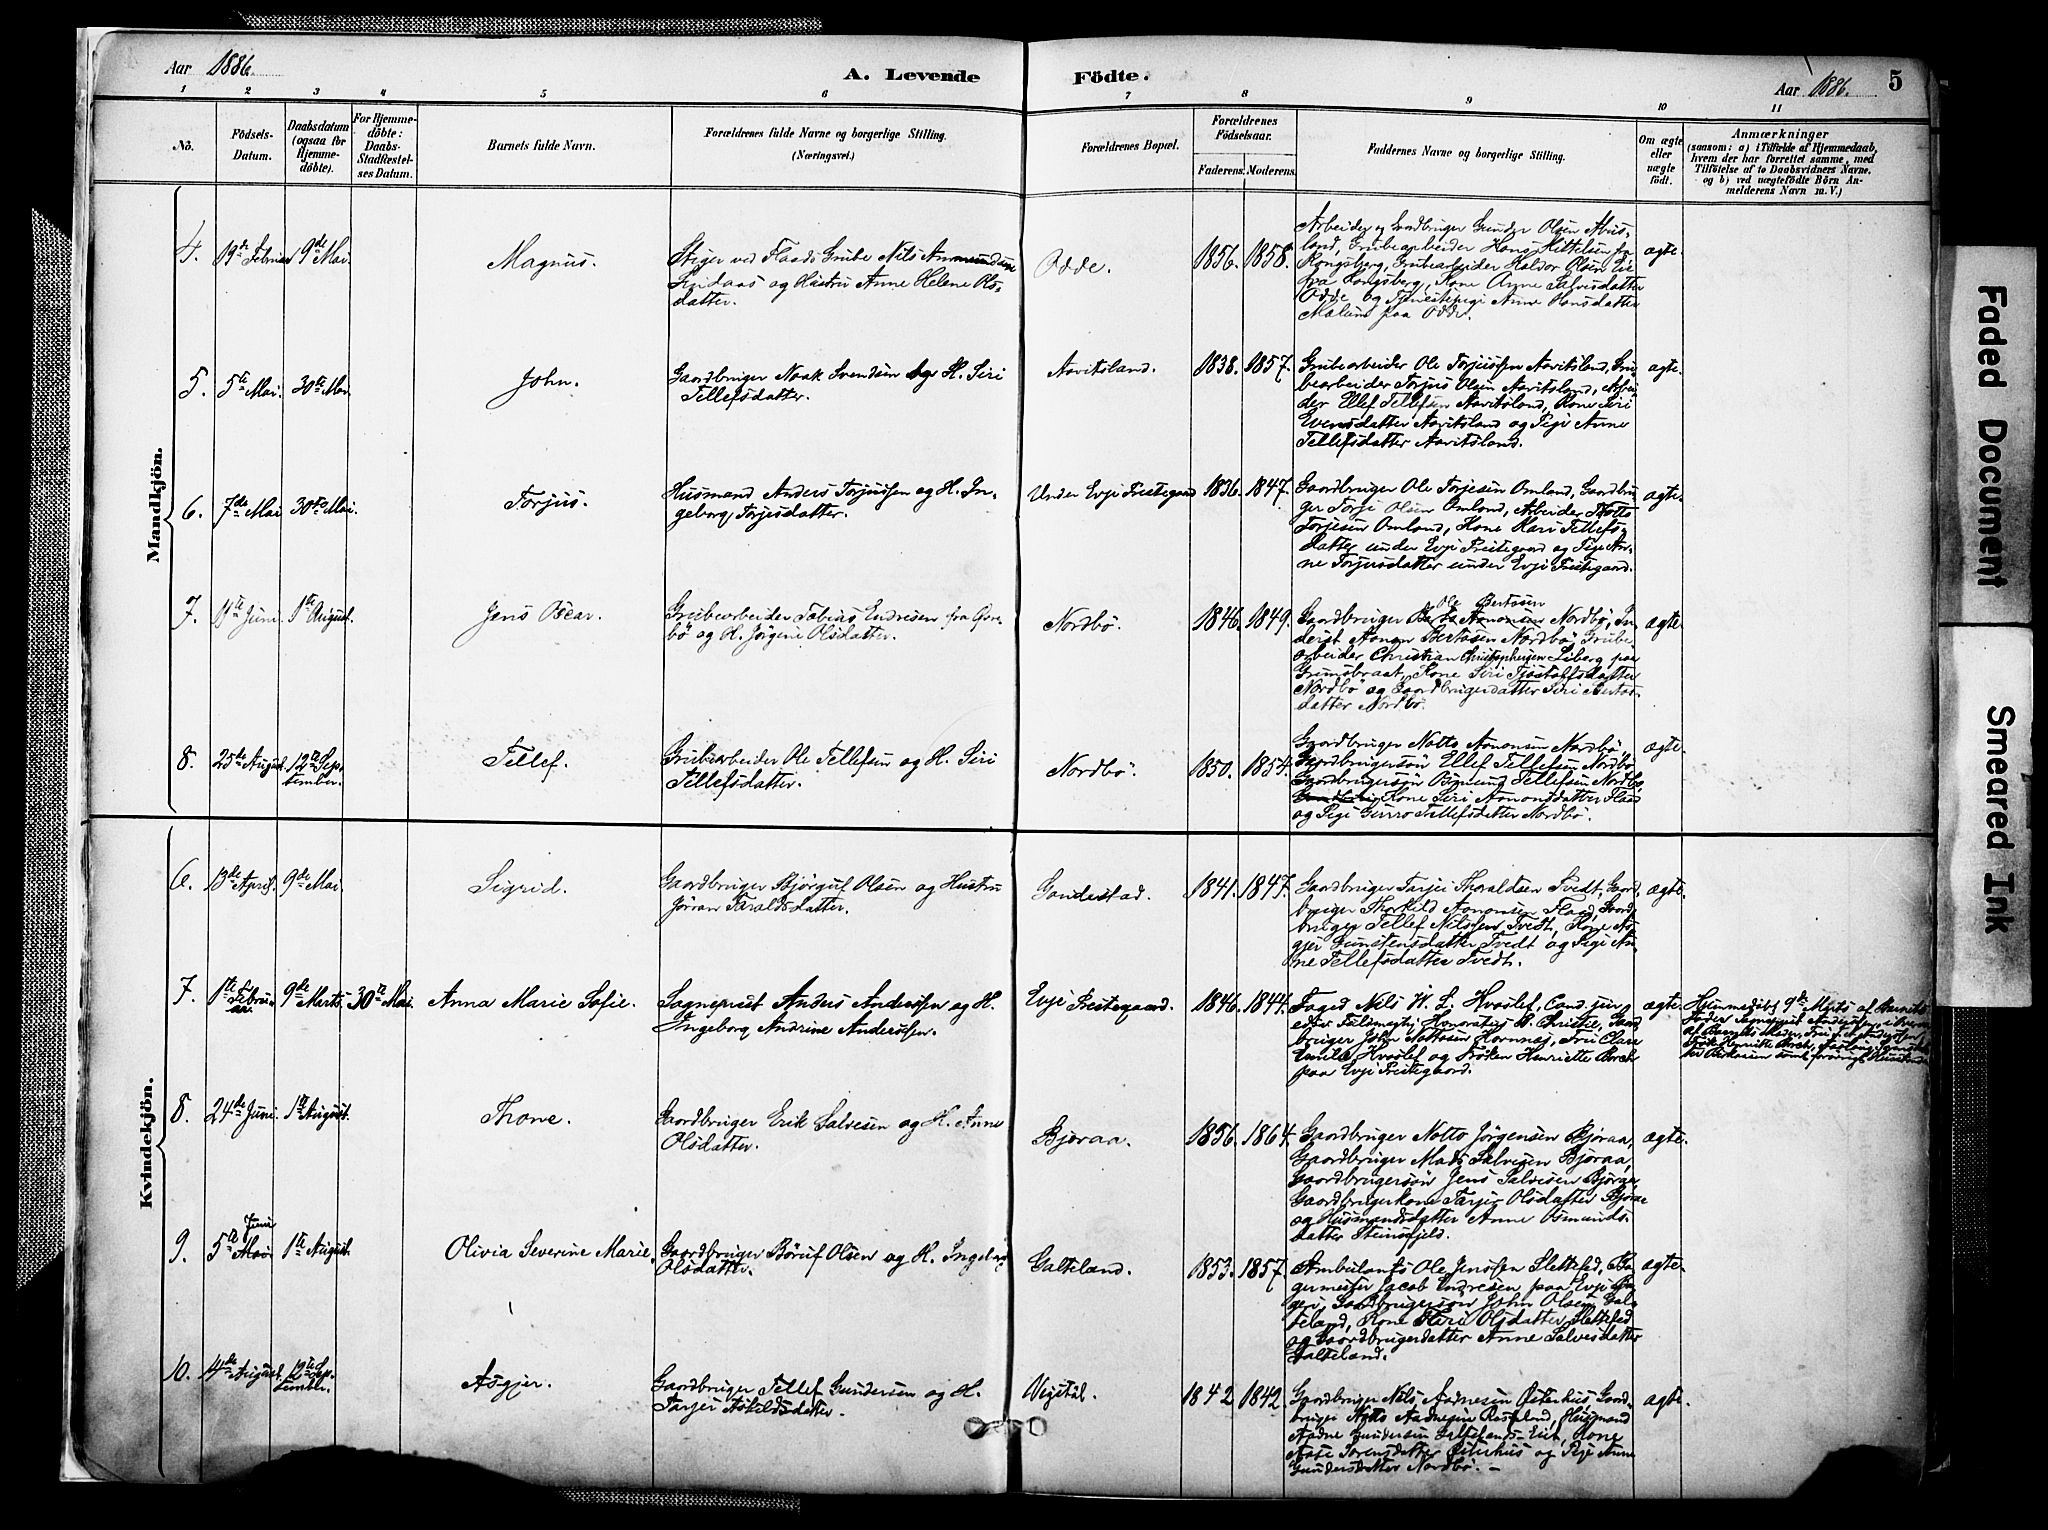 Aar 1886.
A. Levende Födte.
Aar 1886. 5
1 2 3 4 5 6 7 8 9 10 11
No.
Födsels-
Datum.
Daabsdatum
(ogsaa for
Hjemme-
döbte).
For Hjemme-
döbte:
Daabs-
Stadfæstel-
ses Datum.
Barnets fulde Navn.
Forældrenes fulde Navne og borgerlige Stilling.
(Næringsvei.)
Forældrenes Bopæl.
Forældrenes
Födselsaar.
Faderens. Moderens.
Faddernes Navne og borgerlige Stilling.
Om ægte
eller
uægte
födt.
Anmærkninger
(saasom: a) i Tilfælde af Hjemmedaab,
hvem der har forrettet samme, med
Tilföielse af to Daabsvidners Navne,
og b) ved uægtefödte Börn An-
melderens Navn m. V.)
Mandkjön.
4. 19de Februar 9de Mai. Magnus.
Stiger ved Flaads Grube Nils Anmundsen
Lindaas og Hustru Anne Helene Ols-
datter.
Odde. 1856. 1858.
Arbeider og Gaardbruger Gunder Olsen Abus-
land, Grubearbeider Hans Kittelsen fra
Kongsberg, Grubearbeider Haldor Olsen Lie
fra Kongsberg, Kone Anne Salvesdatter
Odde og Tjenestepige Anne Hansdatter
Mølund paa Odde.
ægte.
5. 5te Mai. 30te Mai. John.
Gaardbruger Noak Svendsen og H. Siri
Tellefsdatter.
Aavitsland. 1838. 1857.
Grubearbeider Ole Torjussen Aavitsland, Gru-
bearbeider Torjus Olsen Aavitsland, Arbei-
der Ellef Tellefsen Aavitsland, Kone Siri
Evensdatter Aavitsland og Pige Anne
Tellefsdatter Aavitsland.
ægte.
6. 7de Mai 30te Mai. Torjus.
Husmand Anders Torjussen og H. In-
geborg Torjesdatter.
Under Evje Prestegaard 1836. 1847.
Gaardbruger Ole Torjesen Omland, Gaardbru-
ger Torje Olsen Omland, Arbeider Notto
Torjesen Omland, Kone Kari Tellefs-
datter under Evje Prestegaard og Pige An-
ne Torjusdatter under Evje Prestegaard.
ægte.
7. 11te Juni. 1te August. Jens Oscar.
Grubearbeider Tobias Endresen fra Øvre-
bö og H. Jörgine Olsdatter.
Nordbö. 1846. 1849.
Ole Bertosen
Gaardbruger Aanonsen Nordbö, In-
derst Aanon Bertosen Nordbö, Grube-
arbeider Christian Christophersen Liberg paa
Grunsbraat, Kone Siri Tjöstolfsdatter
Nordbö og Gaardbrugerdatter Siri Bertos-
datter Nordbö.
ægte.
8. 25de August. 12te Sep-
tember. Tellef.
Grubearbeider Ole Tellefsen og H. Siri
Tellefsdatter.
Nordbö. 1850. 1854.
Gaardbruger Notto Aanonsen Nordbö,
Gaardbrugersön Ellef Tellefsen Nordbö,
Gaardbrugersön Osmund Tellefsen Nordbö,
Kone Siri Aanonsdatter Flaad
og Pige Gurro Tellefsdatter Nordbö.
ægte.
Kvindekjön.
6. 13de April. 9de Mai. Sigrid.
Gaardbruger Bjørguf Olsen og Hustru
Jöran Taraldsdatter.
Gandestad. 1841. 1847.
Gaardbruger Tarjei Thoraldsen Tvedt, Gaard-
bruger Thorkild Aanonsen Flaad, Gaard-
bruger Tellef Nilssen Tvedt, Kone As-
gjer Gunstensdatter Tvedt og Pige An-
ne Tellefsdatter Tvedt.
ægte.
7. 1te Februar. 9de Marts. 30te Mai. Anna Marie Sofie.
Sogneprest Anders Anderssen og H.
Ingeborg Andrine Anderssen.
Evje Prestegaard. 1846. 1844.
Foged Nils H. S. Hvoslef, Cand. jur. og
edsv. Fuldmægtig Honoratus B. Christie, Gaard-
bruger John Nottosen Hornnes, Fru Clara
Emilie Hvoslef og Fröken Henriette Birch
paa Evje Prestegaard.
ægte.
Hjemmedöbt 9de Marts af Barnets
Fader Sogneprest Anderssen,
8. 24de Juni. 1te August. Thone.
Gaardbruger Erik Salvesen og H. Anne
Olsdatter.
Bjøraa. 1856. 1864.
Gaardbruger Notto Jörgensen Bjøraa,
Gaardbruger Mads Salvesen Bjøraa,
Gaardbrugersön Jens Salvesen Bjøraa,
Gaardbrugerkone Tarjer Olsdatter Bjøraa
og Husmandsdatter Anne Osmunds-
datter Steinsfjeld.
ægte.
9. 5te Juni Mai 1te August. Olivia Severine Marie.
Gaardbruger Böruf Olsen og H. Ingeborg
Olsdatter.
Galteland. 1853. 1857.
Ambulants Ole Jensen Slettefed, Ba-
germester Jacob Endresen paa Evje Ba-
geri, Gaardbrugersön John Olsen Gal-
teland, Kone Siri Olsdatter Slettefed
og Gaardbrugerdatter Anne Salvesdatter
Galteland.
ægte.
10. 4de August. 12te Sep-
tember. Asgjer.
Gaardbruger Tellef Gundersen og H.
Tarjer Askildsdatter.
Vigstöl. 1842 1842.
Gaardbruger Nils Aadnesen Østerhus, Gaard-
bruger Notto Aadnesen Rosseland, Husmand
Aadne Gundersen Galtelands-Eiet, Kone
Aase Sørensdatter Østerhus og Pige Anne
Gundersdatter Nordbö. –
ægte.
Faded Document
Smeared Ink